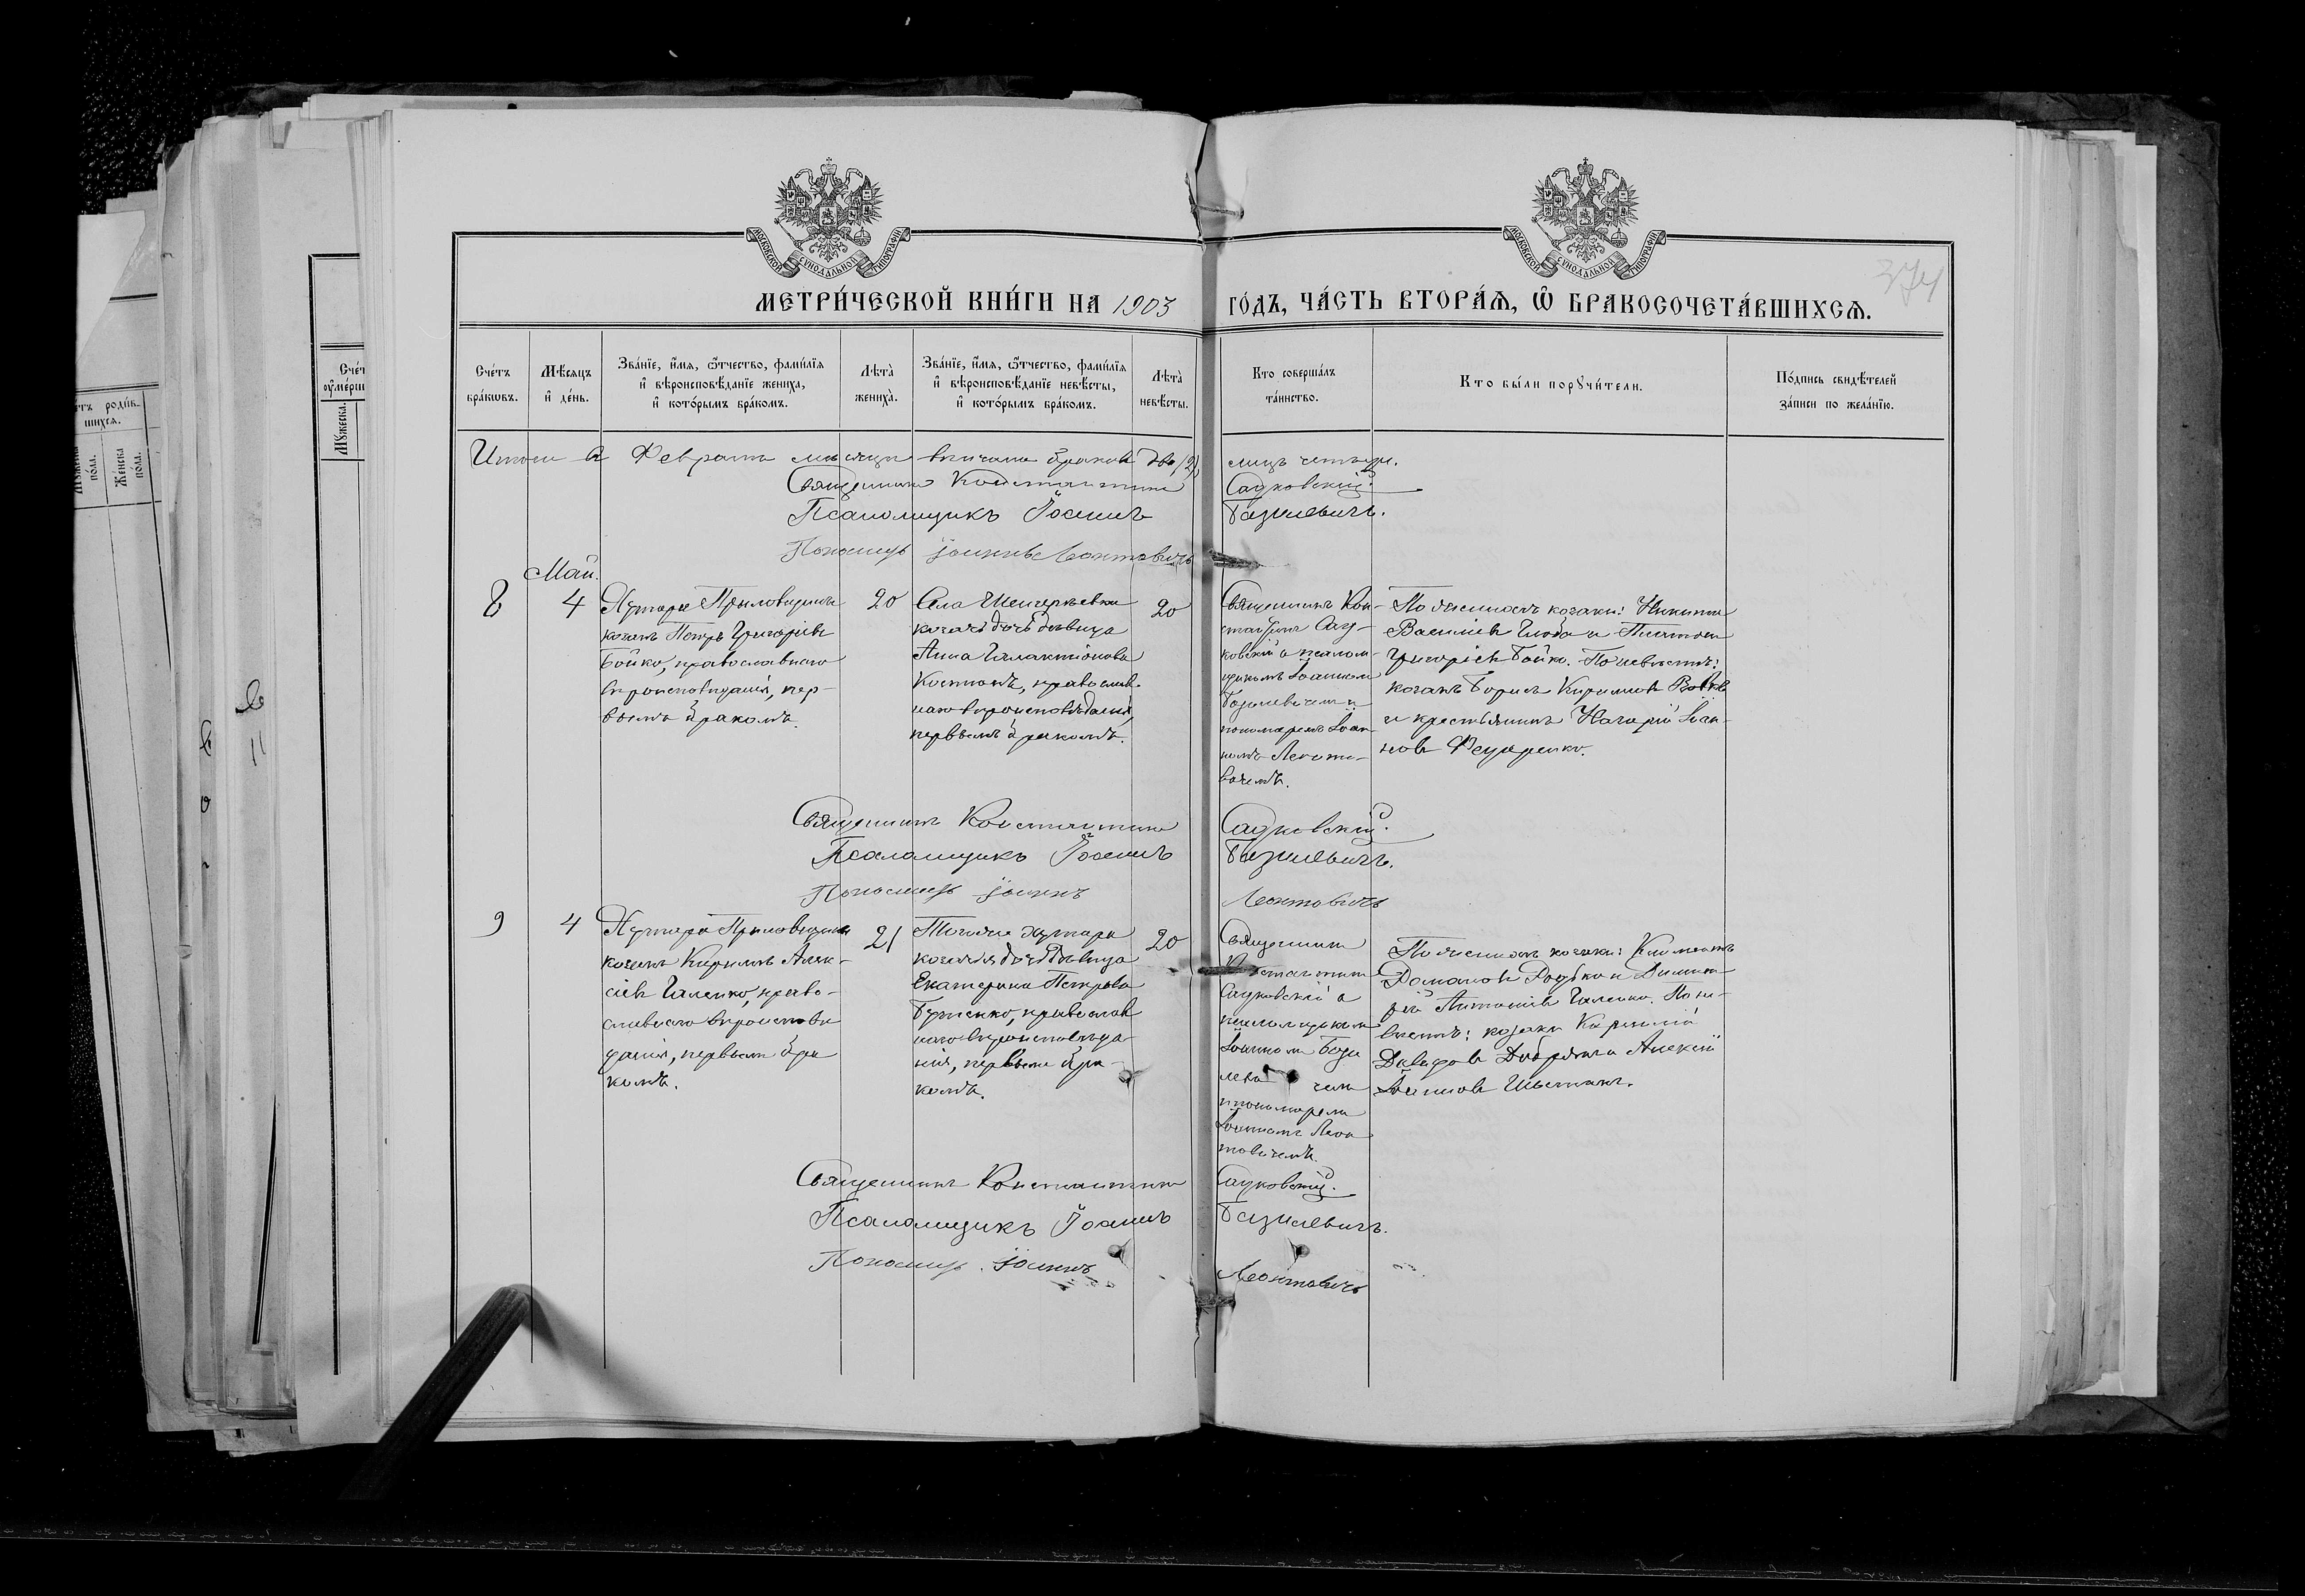 МЕТРИ́ЧЕСКОЙ КНИ́ГИ НА 1903 ГО́ДЪ, ЧА́СТЬ ВТОРА́Ѧ, Ѡ҆ БРАКОСОЧЕТА́ВШИХСѦ.
374
МОСКОВСКОЙ СѴНОДАЛЬНОЙ ТИПОГРАФІИ
МОСКОВСКОЙ СѴНОДАЛЬНОЙ ТИПОГРАФІИ
Сче́тъ бра́кѡвъ.
Мѣ́сѧцъ и҆ де́нь.
Зва́нїе, и҆́мѧ, ѻ҆́тчество, фами́лїѧ и҆ вѣроисповѣ́данїе жениха̀, и҆ кото́рымъ бра́комъ.
Лѣта̀ жениха̀.
Зва́нїе, и҆́мѧ, ѻ҆́тчество, фами́лїѧ и҆ вѣроисповѣ́данїе невѣ́сты, и҆ кото́рымъ бра́комъ.
Лѣта̀ невѣ́сты.
Кто соверша́лъ та́инство.
Кто бы́ли порꙋчи́тели.
По́дпись свидѣ́телей за́писи по жела́нїю.
Итого въ Февралѣ мѣсяцѣ вѣнчано браковъ два (2), лицъ четыре.
Священникъ Константинъ Садковскій.
Псаломщикъ Іоаннъ Базилевичъ.
Пономарь Іоаннъ Леонтовичъ
Май.
8
4
козакъ Петръ Григоріевъ
Бойко, православнаго
вѣроисповѣданія, пер-
вымъ бракомъ.
20
козачья дочь дѣвица
Анна Галактіонова
православ-
наго вѣроисповѣданія,
первымъ бракомъ.
20
Священникъ Кон-
стантинъ Сад-
ковскій с псалом-
щикомъ Іоанномъ
Базилевичемъ и
пономаремъ Іоан-
номъ Леонто-
вичемъ.
По женихѣ козаки: Никита
Василіевъ Глоба и Платонъ
Григоріевъ Бойко. По невѣстѣ:
козакъ Борисъ Кириловъ Вовкъ
и крестьянинъ Назарій Іоан-
новъ Федоренко.
Священникъ Константинъ Садковскій.
Псаломщикъ Іоаннъ Базилевичъ.
Пономарь Іоаннъ Леонтовичъ
9
4
козакъ Кирилъ Алек-
сіевъ Галенко, право-
славнаго вѣроисповѣ
данія, первымъ бра
комъ.
21
Того же хутора
козачья дочь дѣвица
Екатерина Петрова
православ
наго вѣроисповѣда
нія, первымъ бра-
комъ.
20
Священникъ
Константинъ
Садковскій с
псаломщикомъ
Іоанномъ Бази
леви чемъ
и пономаремъ
Іоанномъ Леон
товичемъ.
По женихѣ козаки: Климентъ
Романовъ Дробко и Димит
рій Антоніевъ Галенко. По не-
вѣстѣ: козаки
Давидовъ и Алексій
Іоанновъ Шестакъ.
Священникъ Константинъ Садковскій.
Псаломщикъ Іоаннъ Базилевичъ.
Пономарь Іоаннъ Леонтовичъ